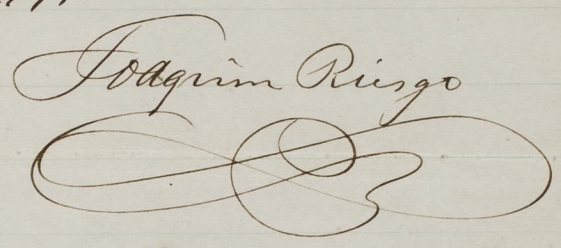 Joaquim Riesgo